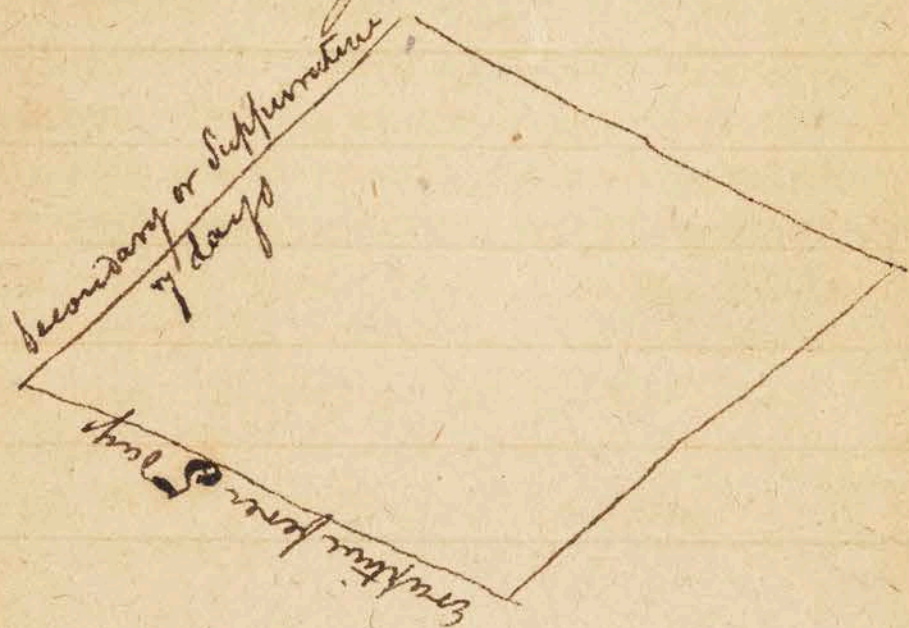 Secondary or Suppurative
7 days
Eruptive fever 5 days